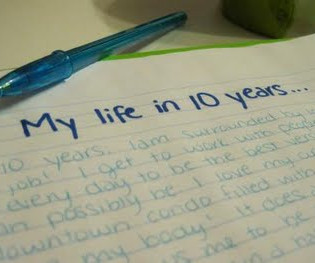 My life in 10 years...
10 years. I am surrounded by
job! I get to work with
every day to be the best ver
an possibly be I love my
downtown condo filled with
my body! It does
me to be